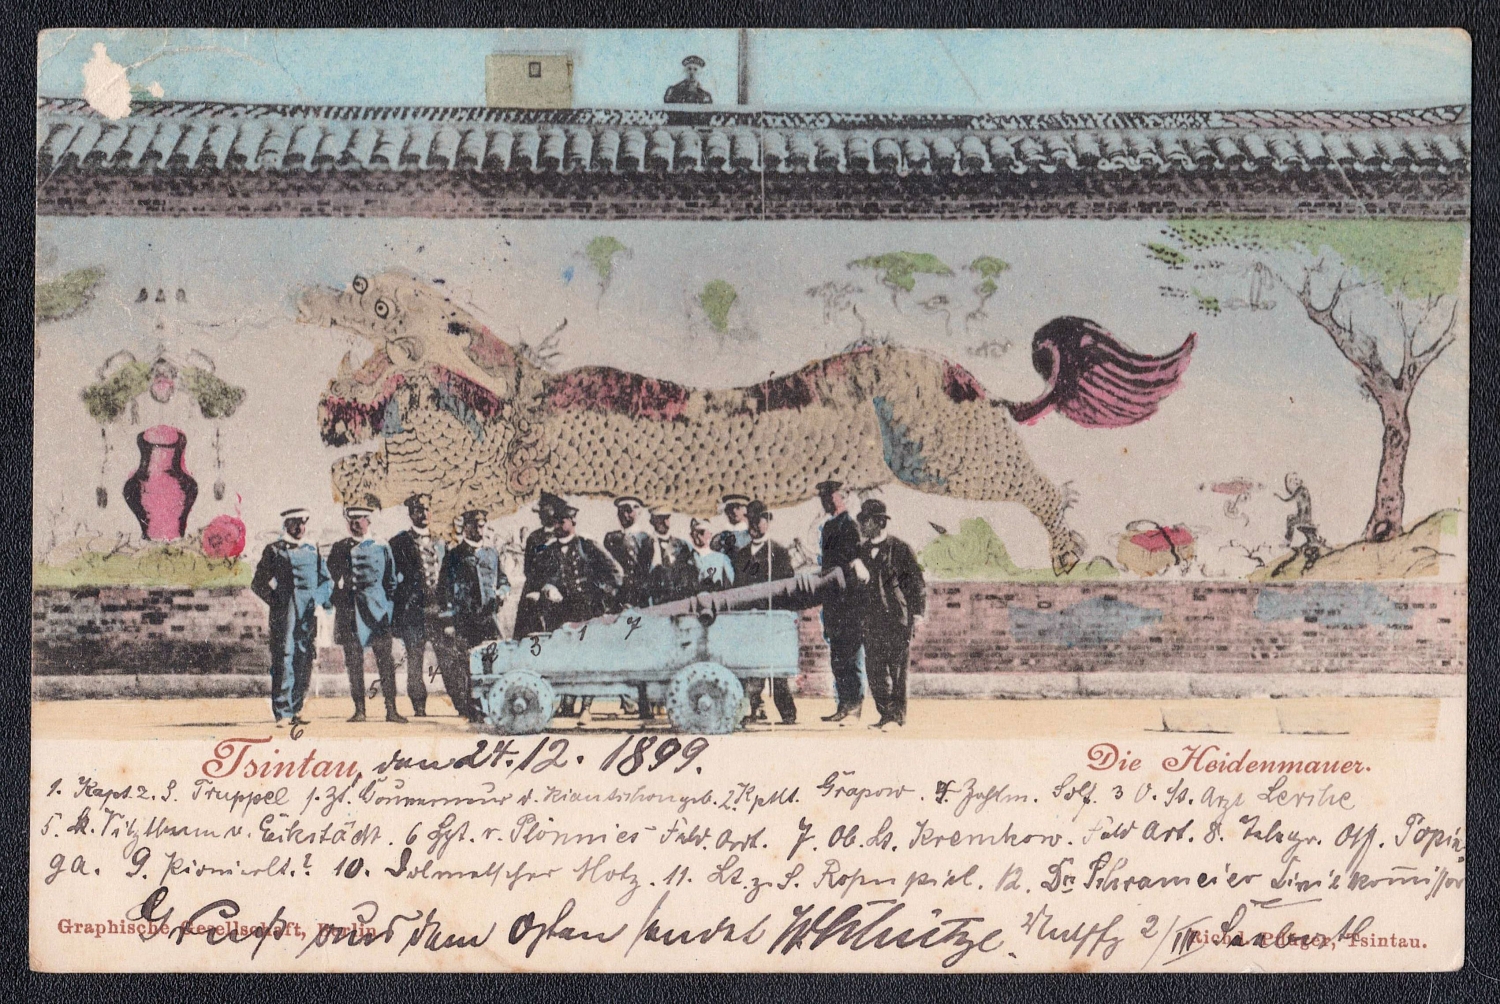 6 5 4 2 3 1 7
Tsintau, den 24.12.1899. Die Heidenmauer.
1. Kapt. z. S. Truppel z. Zt. Gouverneur d. Kiautschougeb. 2 Kptlt. Grapow. 4 Zahlm. Solf. 3 O. St. Arzt Lerche
5. Lt. Vitzthum v. Eckstädt. 6 Lt. v. Plönnies Feld Art. 7. Ob. Lt. Kremkow. Feld Art. 8. Telegr. Off. Popin
ga. 9. Pionierlt.? 10. Dolmetscher Hotz. 11. Lt. z. S. 12. Dr. Schrameier Zivilkommissar
Gruß aus dem Osten sendet W Schütze. 2/III
Graphische Gesellschaft, Berlin. Tsintau.